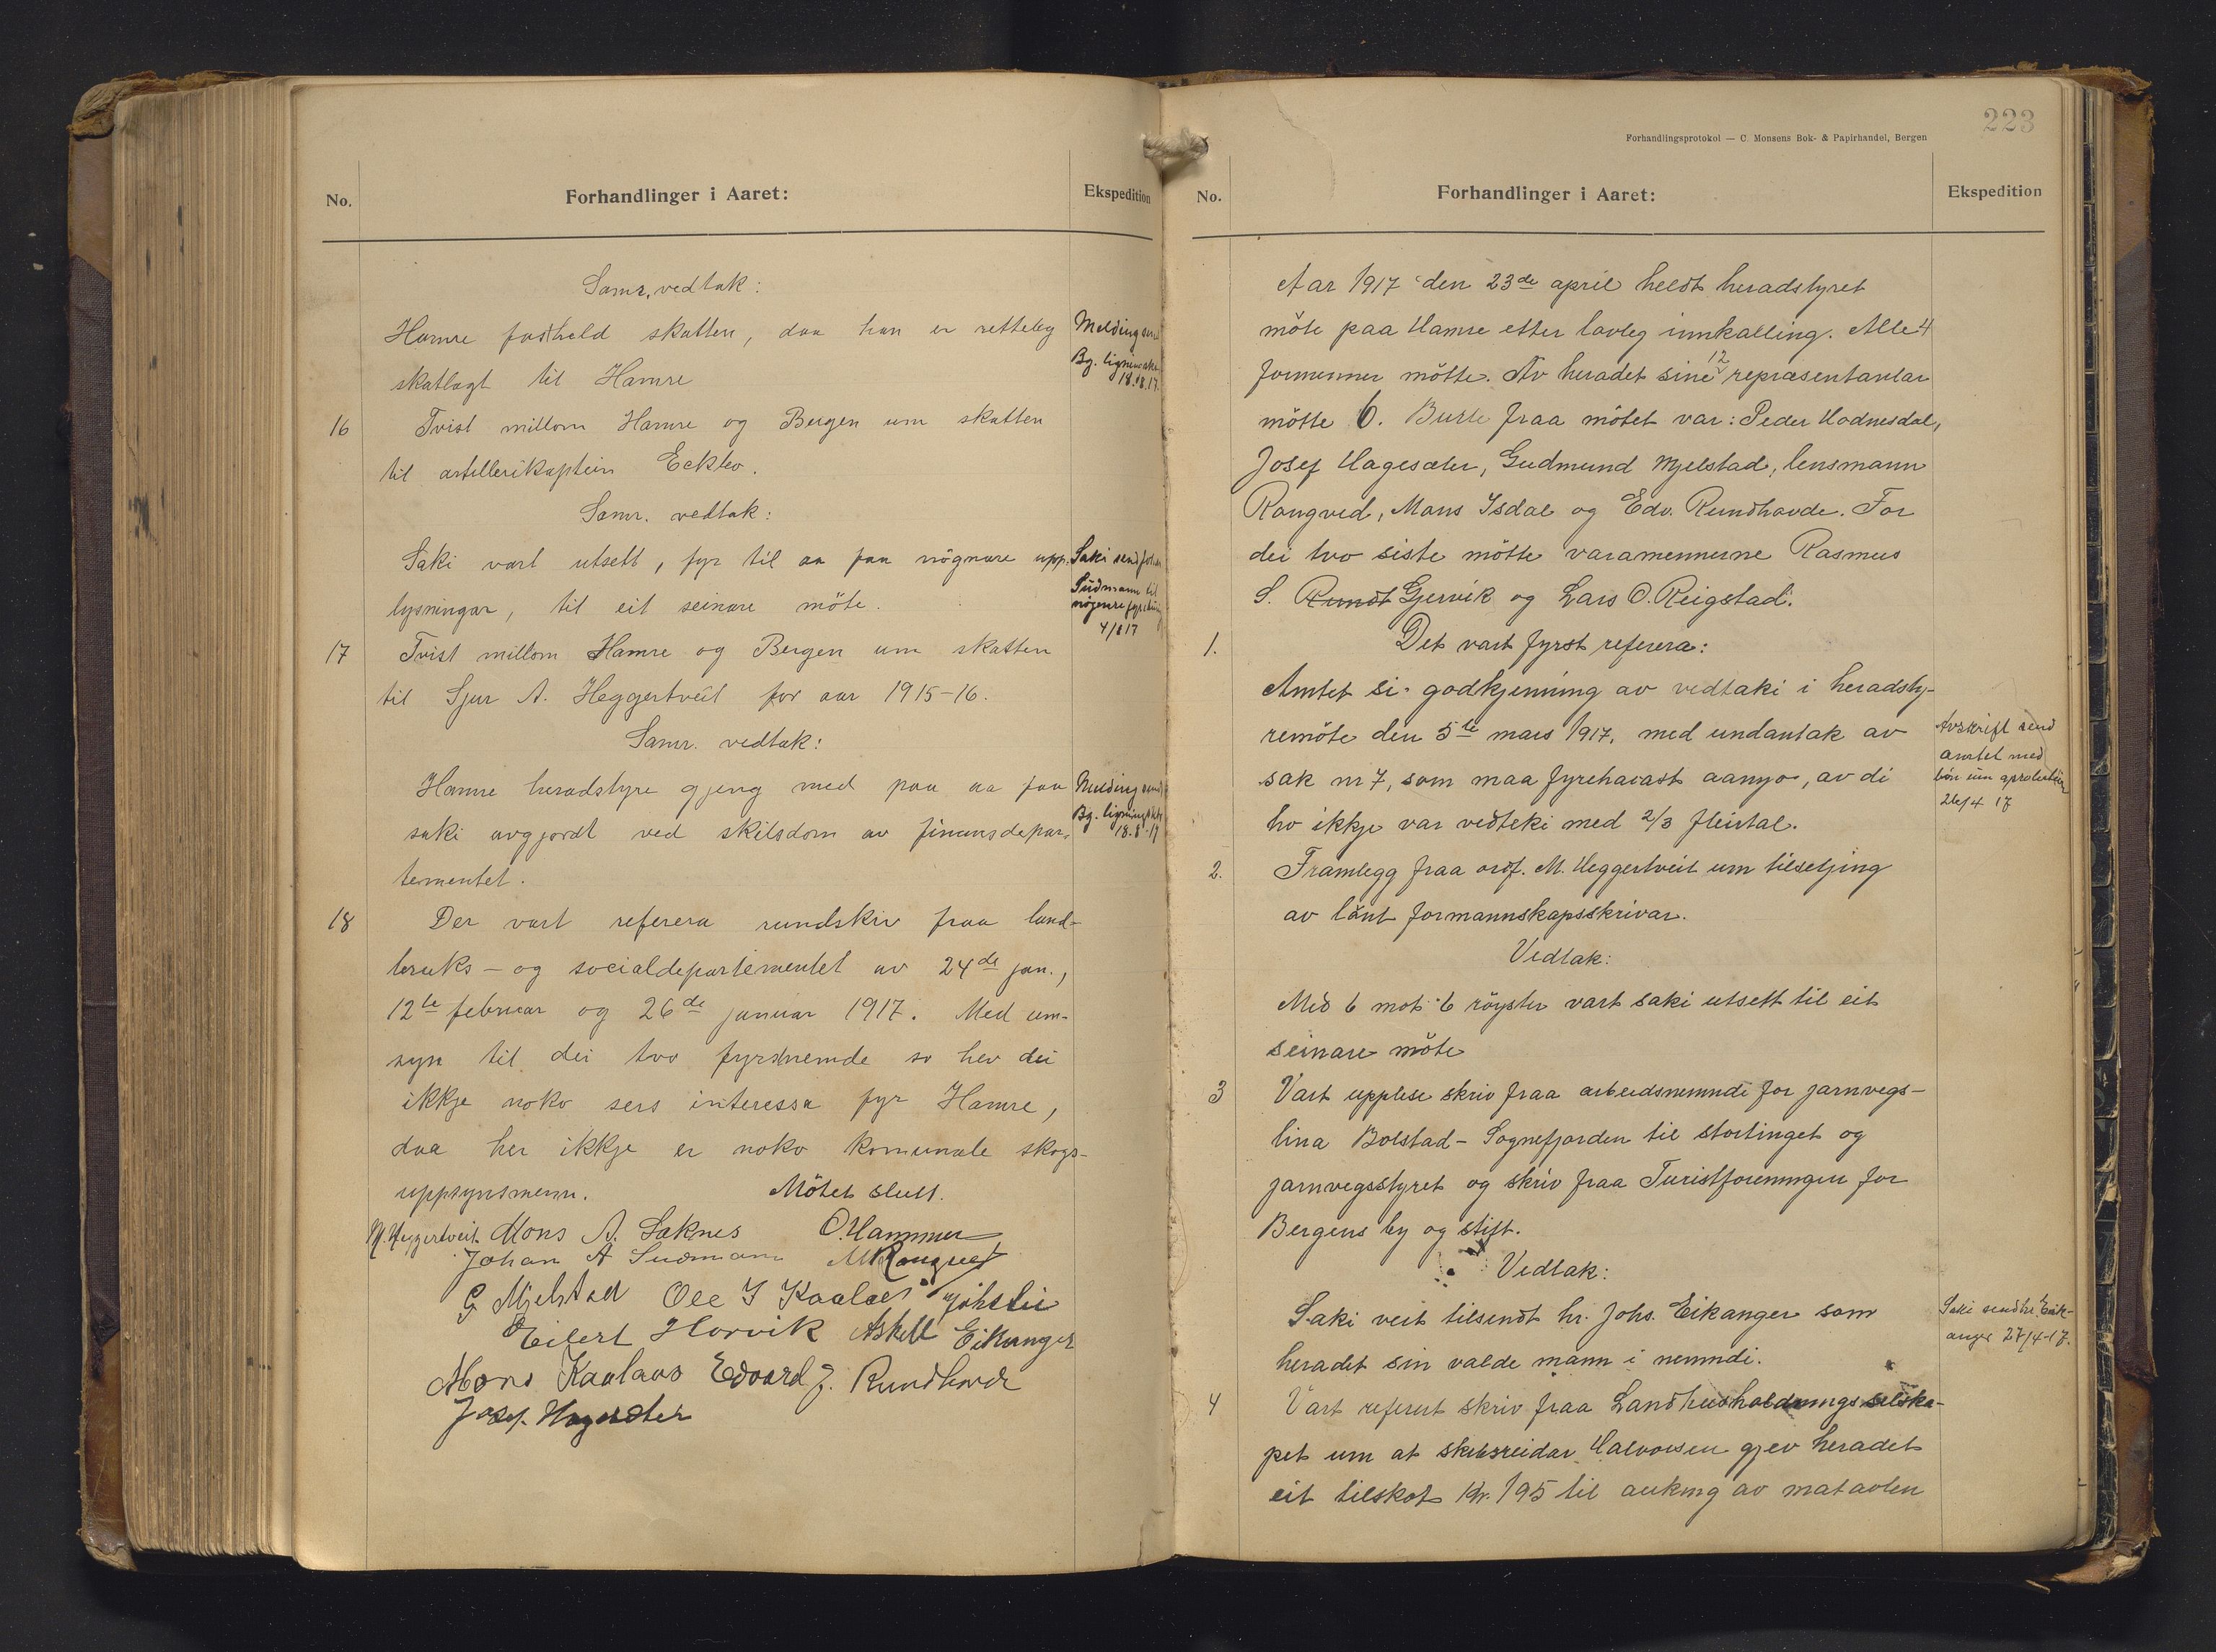 No.
Forhandlinger i Aaret:
Ekspedition
Samr. vedtak:
Hamre fastheld skatten, daa han er retteleg
skatlagt til Hamre
Melding send
Bg. ligningsk.
18.8.17.
16
Tvist millom Hamre og Bergen um skatten
til artillerikaptein Eckho.
Samr. vedtak:
Saki vart utsett, fyr til aa faa nögnare upp-
lysningar, til eit seinare möte.
Saki send
Sudmann til
nögnare
4/8 17
17
Tvist millom Hamre og Bergen um skatten
til Sjur A. Heggertveit for aar 1915-16.
Samr. vedtak:
Hamre heradstyre gjeng med paa aa faa
saki avgjordt ved skilsdom av finansdepar-
tementet.
Melding send
Bg. ligningsk.
18.8.17
18
Der vart referera rundskriv fraa land-
bruks- og socialdepartementet av 24de jan.,
12te februar og 26de januar 1917. Med um-
syn til dei tvo fyrstnemde so hev dei
ikkje noko sers interessa fyr Hamre,
daa her ikkje er noko komunale skogs-
uppsynsmenn. Mötet slutt.
M. Heggertveit Mons A. Saknes O. Hammer
Johan A Sudmann M Rangved
G Mjelstad Ole I Kaalaas Johs Lie
Eilert Horvik Askell Eikanger
Mons Kaalaas Edvard J. Rundhovde
Josef Hagesæter
223
Forhandlingsprotokol — C. Monsens Bok- & Papirhandel, Bergen
No.
Forhandlinger i Aaret:
Ekspedition
Aar 1917 den 23de april heldt heradstyret
möte paa Hamre etter lovleg innkalling. Alle 4
formenner mötte. Av heradet sine 12 repræsentantar
mötte 6. Burte fraa mötet var: Peder Hodnesdal,
Josef Hagesæter, Gudmund Mjelstad, lensmann
Rangved, Mons Isdal og Edv. Rundhovde. For
dei tvo siste mötte varamennerne Rasmus
S. Rundt Gjervik og Lars O. Reigstad.
1.
Det vart fyrst referera:
Amtet si godkjenning av vedtaki i heradsty-
remöte den 5te mars 1917, med undantak av
sak nr 7, som maa fyrehavast aanyo, av di
ho ikkje var vedteki med 2/3 fleirtal.
Avskrift send
amtet med
bön um aprobation
26/4 17
2.
Framlegg fraa ordf. M. Heggertveit um tilsetjing
av lönt formannskapsskrivar.
Vedtak:
Med 6 mot 6 röyster vart saki utsett til eit
seinare möte
3
Vart upplese skriv fraa arbeidsnemndi for jarnvegs-
lina Bolstad-Sognefjorden til stortinget og
jarnvegsstyret og skriv fraa Turistforeningen for
Bergens by og stift.
Vedtak:
Saki veit tilsendt hr. Johs. Eikanger som
heradet sin valde mann i nemndi.
Saki send hr. Eik-
anger 27/4-17.
4
Vart referert skriv fraa Landhusholdningsselska-
pet um at skibsreidar Halvorsen gjev heradet
eit tilskot Kr. 195 til auking av matavlen